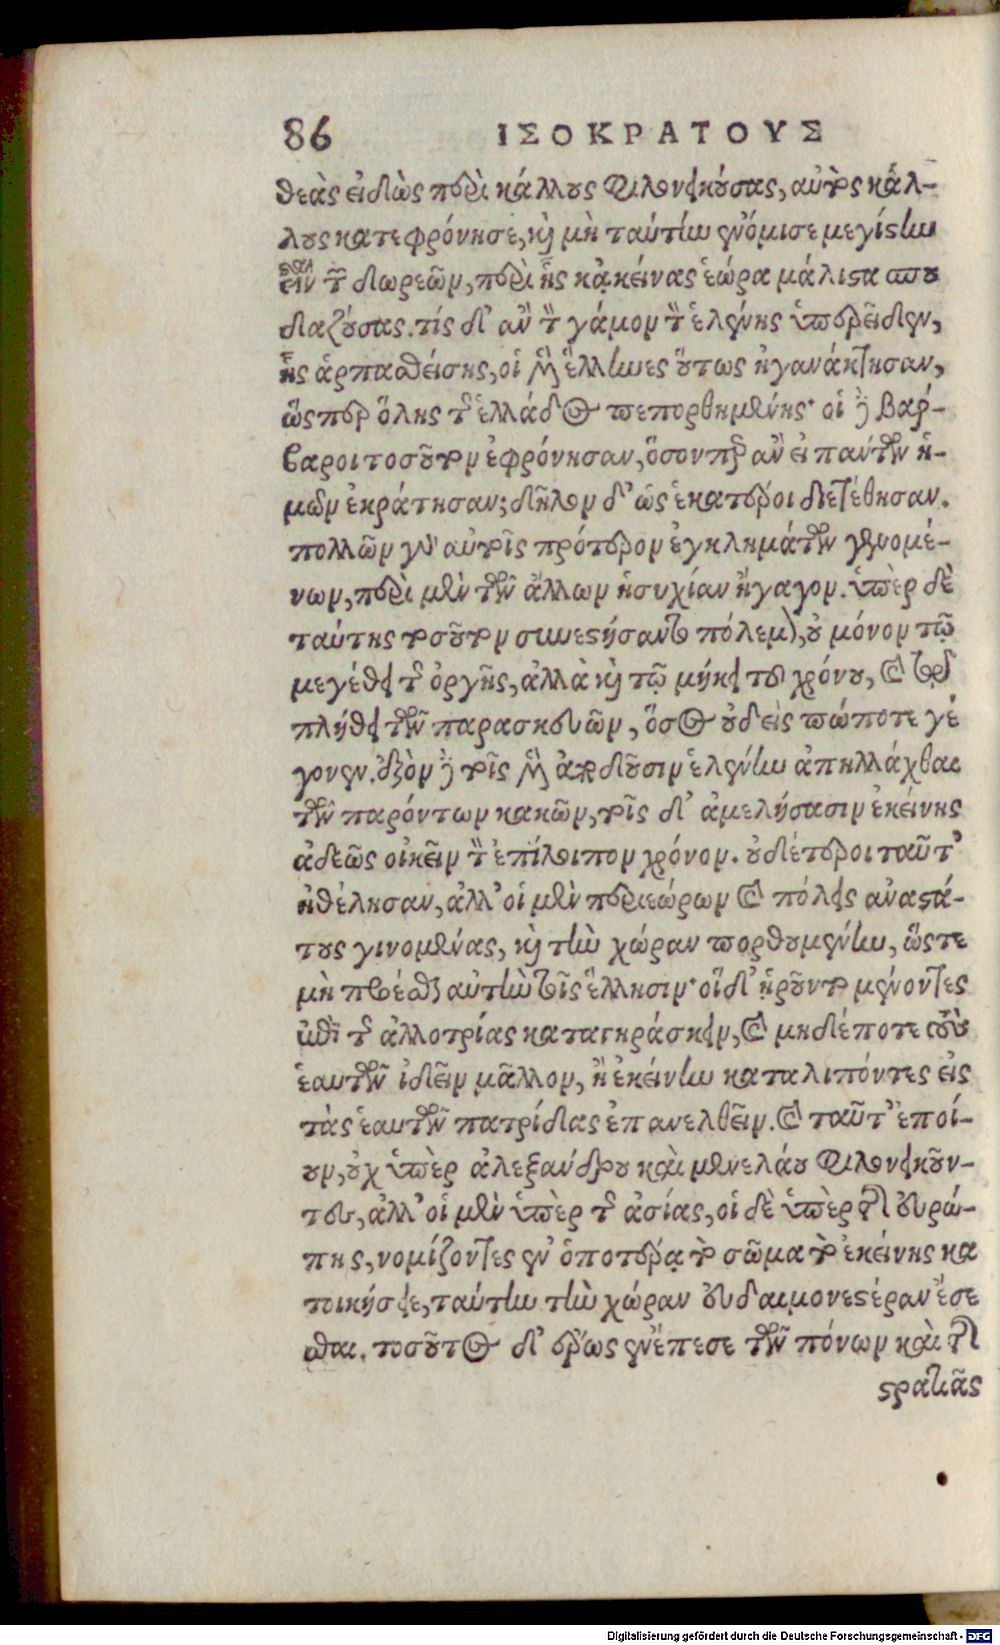 86 ΙΣΟΚΡΑΤΟΥΣ
θεὰς εἰδὼς περὶ κάλλους φιλονεικούσας, αὐτὸς κάλ-
λους κατεφρόνησε, καὶ μὴ ταύτην ἐνόμισε μεγίστην
εἶναι τῶν δωρεῶν, περὶ ἧς κᾀκείνας ἑώρα μάλιστα σπου
δαζούσας. τίς δ' ἂν τὸν γάμον τὸν ἑλένης ὑπερεῖδεν,
ἧς ἁρπαθείσης, οἱ μὲν ἕλληνες οὕτως ἠγανάκτησαν,
ὥςπερ ὅλης τῆς ἑλλάδος πεπορθημένης· οἱ δὲ βαρ-
βαροι τοσοῦτον ἐφρόνησαν, ὅσον περ ἂν εἰ πάντων ἡ-
μῶν ἐκράτησαν; δῆλον δ' ὡς ἑκατεροι διετέθησαν.
πολλῶν γὰρ αὐτοῖς πρότερον ἐγκλημάτων γενομέ-
νων, περὶ μὲν τῶν ἄλλων ἡσυχίαν ἤγαγον. ὑπὲρ δὲ
ταύτης τοσοῦτον συνεστήσαντο πόλεμον, οὐ μόνον τῷ
μεγέθει τῆς ὀργῆς, ἀλλὰ καὶ τῷ μήκει τοῦ χρόνου, καὶ τῷ
πλήθει τῶν παρασκευῶν, ὅσος οὐδεὶς πώποτε γέ
γονεν. ἐξὸν δὲ τοῖς μὲν ἀποδοῦσιν ἑλένην ἀπηλλάχθαι
τῶν παρόντων κακῶν, τοῖς δ' ἀμελήσασιν ἐκείνης
ἀδεῶς οἰκεῖν τὸν ἐπίλοιπον χρόνον. οὐδέτεροι ταῦτ'
ἠθέλησαν, ἀλλ' οἱ μὲν περιεώρων καὶ πόλεις ἀναστά-
τους γινομένας, καὶ τὴν χώραν πορθουμένην, ὥςτε
μὴ προέσθαι αὐτὴν τοῖς ἕλλησιν· οἳ δ' ᾑροῦντο μένοντες
ἐπὶ τῆς ἀλλοτρίας καταγηράσκειν, καὶ μηδέποτε τοὺς
ἑαυτῶν ἰδεῖν μᾶλλον, ἢ ἐκείνην καταλιπόντες εἰς
τὰς ἑαυτῶν πατρίδας ἐπανελθεῖν. καὶ ταῦτ' ἐποί-
ουν, οὐχ ὑπὲρ ἀλεξάνδρου καὶ μενελάου φιλονεικοῦν-
τες, ἀλλ' οἱ μὲν ὑπὲρ τῆς ἀσίας, οἱ δὲ ὑπὲρ τῆς εὐρώ-
πης, νομίζοντες ἐν ὁποτέρᾳ τὸ σῶμα τὸ ἐκείνης κα
τοικήσειε, ταύτην τὴν χώραν εὐδαιμονεστέραν ἔσε
σθαι. τοσοῦτος δ' ἔρως ἐνέπεσε τῶν πόνων καὶ τῆς
στρατιᾶς
Digitalisierung gefördert durch die Deutsche Forschungsgemeinschaft - DFG